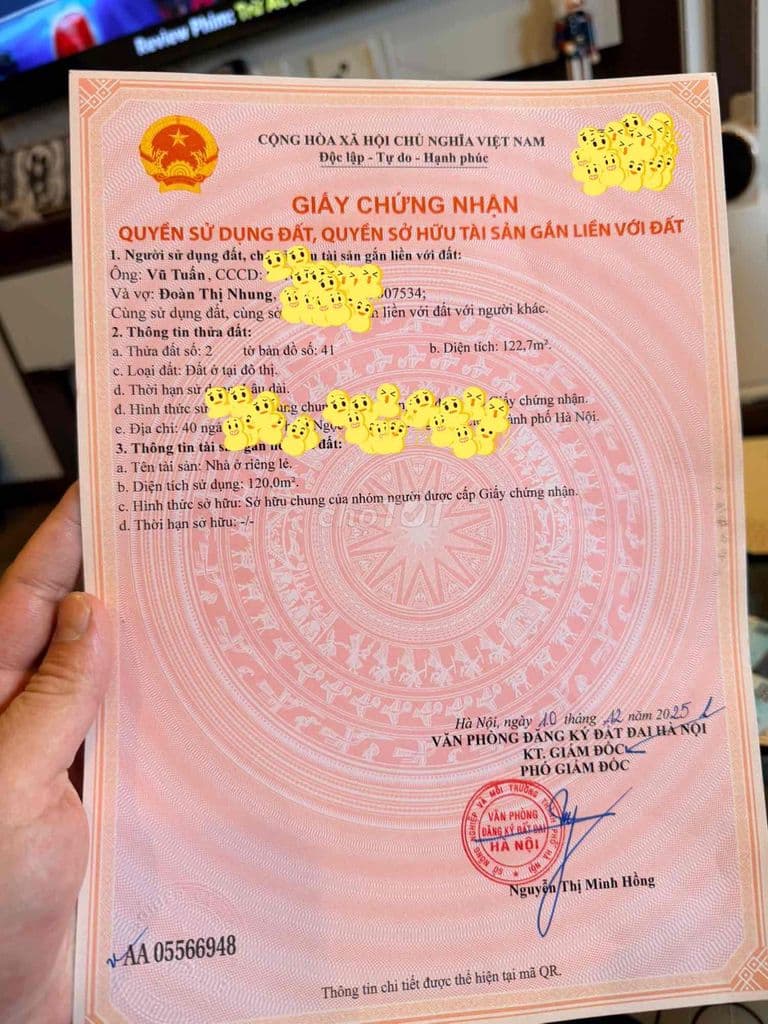 Review Phim: Trữ Ác
CỘNG HÒA XÃ HỘI CHỦ NGHĨA VIỆT NAM
Độc lập - Tự do - Hạnh phúc
GIẤY CHỨNG NHẬN
QUYỀN SỬ DỤNG ĐẤT, QUYỀN SỞ HỮU TÀI SẢN GẮN LIỀN VỚI ĐẤT
1. Người sử dụng đất, ch u tài sản gắn liền với đất:
Ông: Vũ Tuấn, CCCD:
Và vợ: Đoàn Thị Nhung, 07534;
Cùng sử dụng đất, cùng sở liền với đất với người khác.
2. Thông tin thửa đất:
a. Thửa đất số: 2 tờ bản đồ số: 41 b. Diện tích: 122,7m².
c. Loại đất: Đất ở tại đô thị.
d. Thời hạn sử dụng: Lâu dài.
đ. Hình thức sử ng chung Giấy chứng nhận.
e. Địa chỉ: 40 ngá Ngọc thành phố Hà Nội.
3. Thông tin tài sản gắn liền đất:
a. Tên tài sản: Nhà ở riêng lẻ.
b. Diện tích sử dụng: 120,0m².
c. Hình thức sở hữu: Sở hữu chung của nhóm người được cấp Giấy chứng nhận.
d. Thời hạn sở hữu: -/-
chợ TỐT
Hà Nội, ngày 10 tháng 12 năm 2025
VĂN PHÒNG ĐĂNG KÝ ĐẤT ĐAI HÀ NỘI
KT. GIÁM ĐỐC
PHÓ GIÁM ĐỐC
SỞ NÔNG NGHIỆP VÀ MÔI TRƯỜNG THÀNH PHỐ HÀ NỘI
VĂN PHÒNG
ĐĂNG KÝ ĐẤT ĐAI
HÀ NỘI
Nguyễn Thị Minh Hồng
AA 05566948
Thông tin chi tiết được thể hiện tại mã QR.